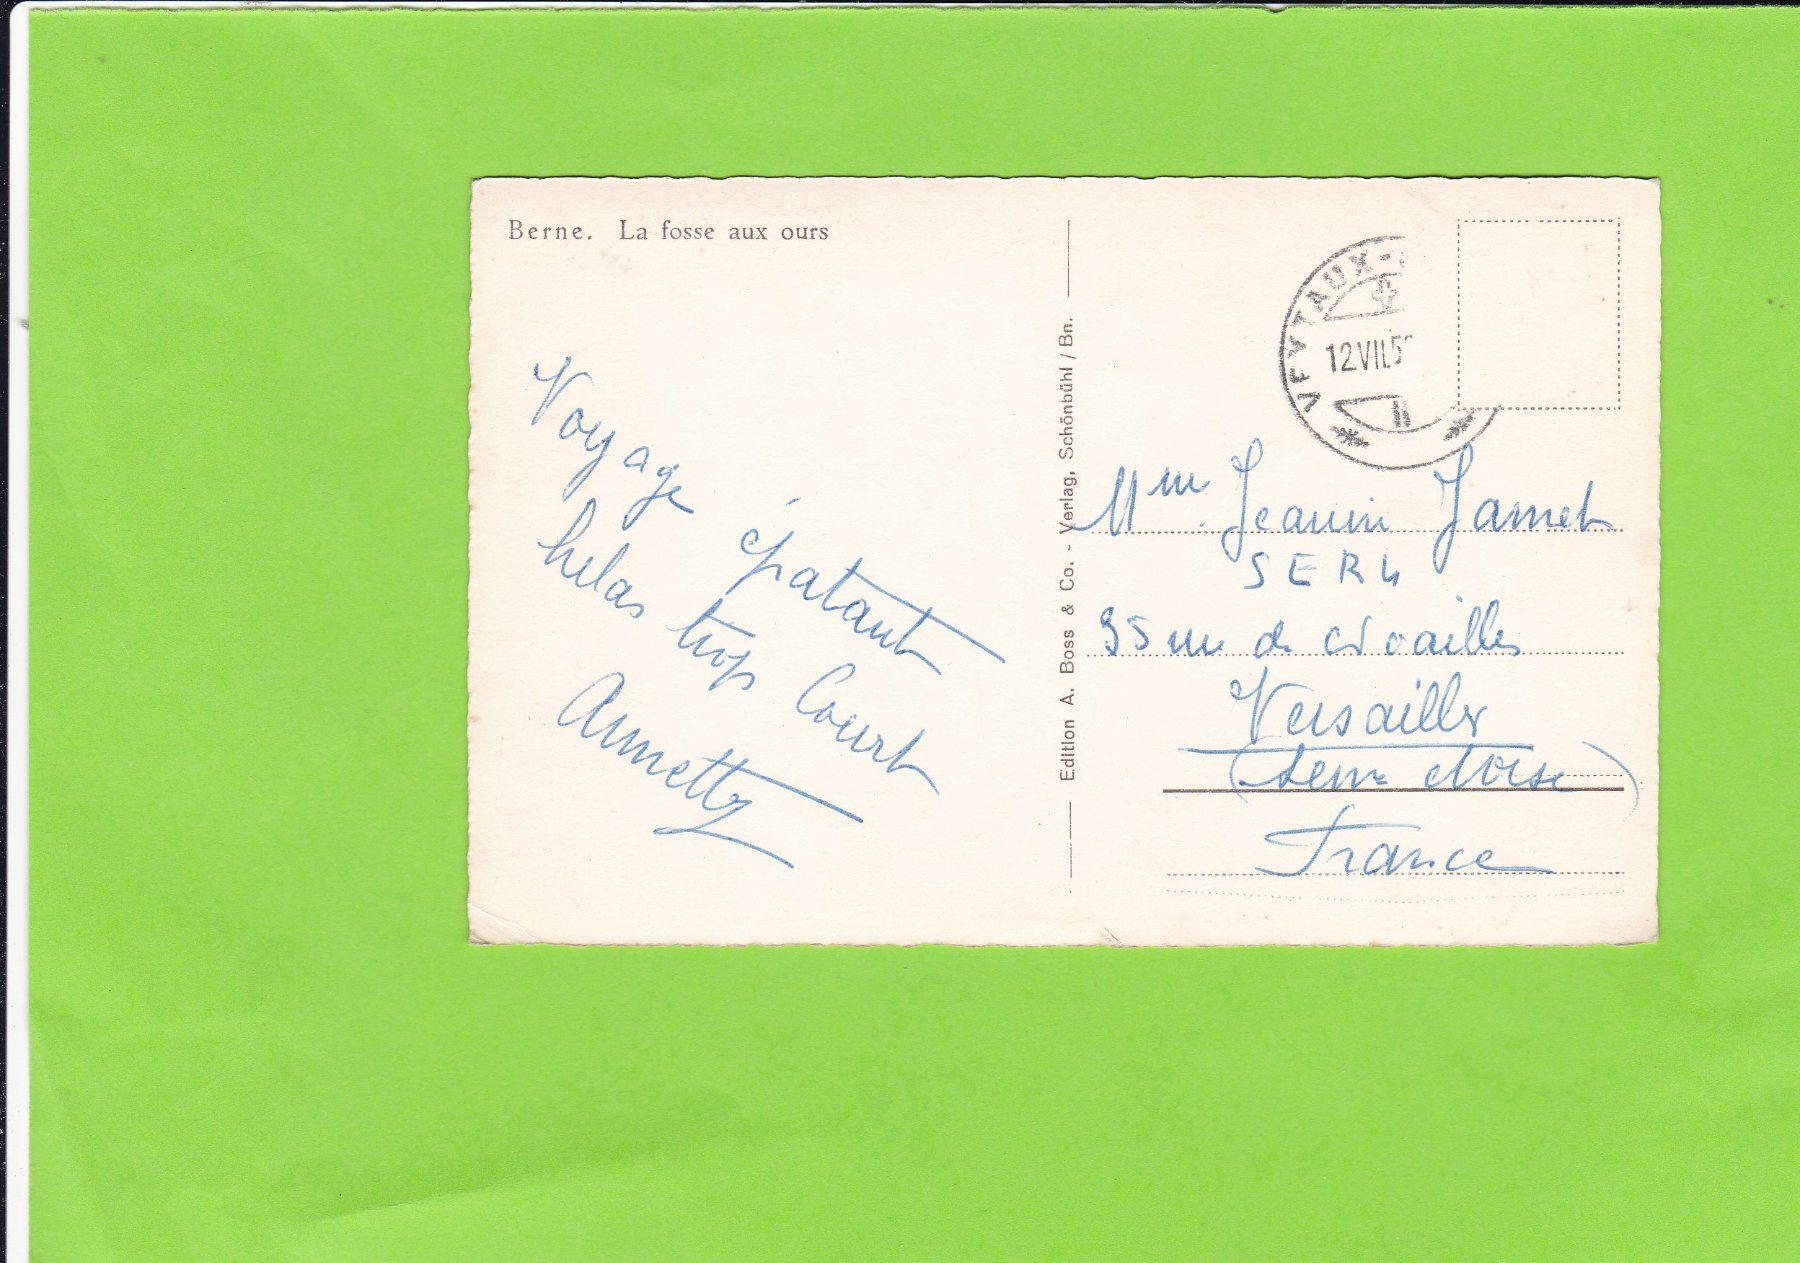 Berne. La fosse aux ours
Voyage épatant
helas trop Court
Annette
Edition A. Boss & Co. - Verlag, Schönbühl / Bn.
VEYTAUX-
12 VII. 5
Mme Jeannine Jamet
S E R
35 rue de
Versailles
(Seine et Oise)
France